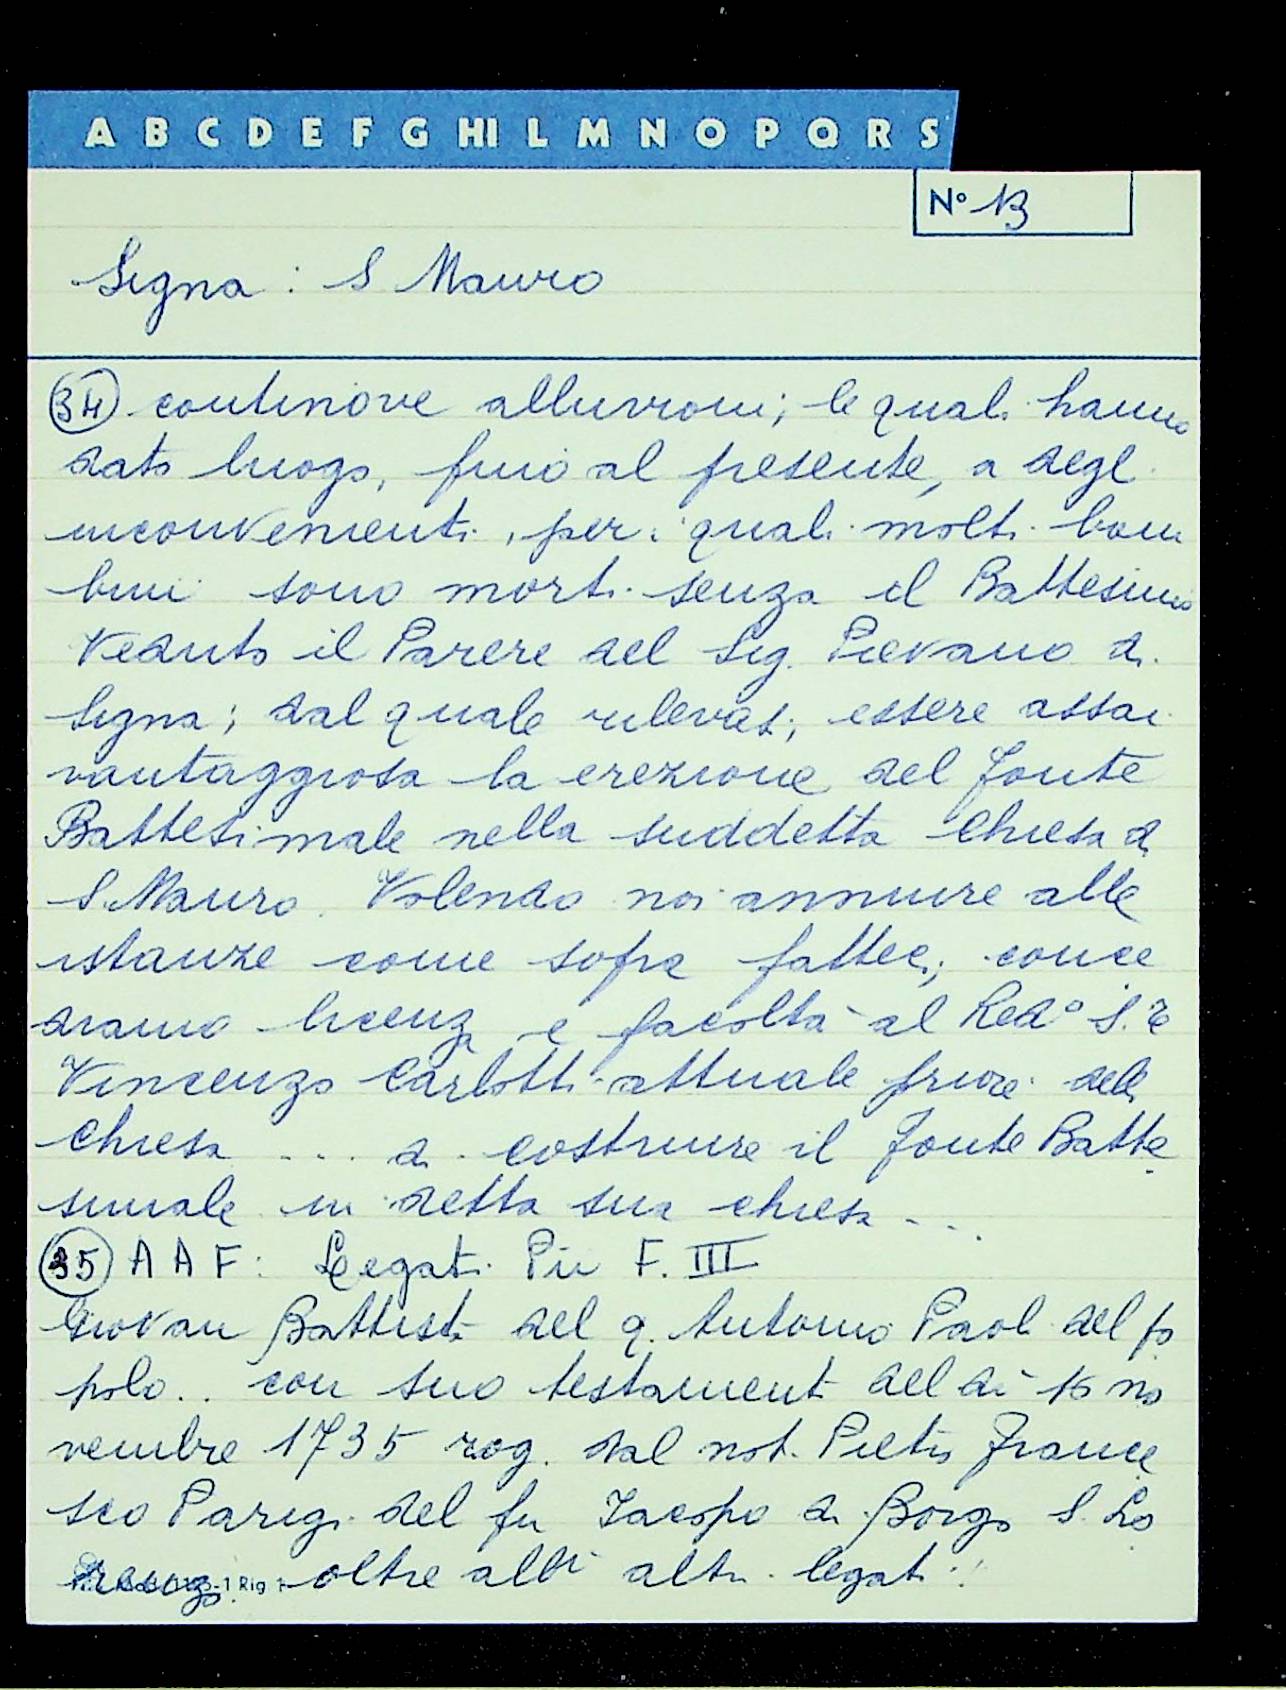 A B C D E F G HI L M N O P Q R S
N° 13
Signa : S Mauro
34 continove alluvioni; le quali hanno
dato luogo, fino al presente, a degl
inconvenienti, per i quali molti bam
bini sono morti senza il Battesimo
Veduto il Parere del Sig. Pievano di
Signa; dal quale rilevasi, essere assai
vantaggiosa la erezione del fonte
Battesimale nella suddetta Chiesa di
S. Mauro. Volendo noi annuire alle
istanze come sopra fattec; conce
diamo licenza e facoltà al Red° S.re
Vincenzo Carlotti attuale priore della
Chiesa ... di costruire il fonte Batte
simale in detta sua chiesa ...
35 A A F: Legati Pii F. III
Giovan Battista del q. Antonio Paoli del po
polo .. con suo testamento del dì 16 no
vembre 1735 rog. dal not. Pietro France
sco Parigi del fu Jacopo di Borgo S. Lo
renzo. oltre alli altri legati
-1 Rig